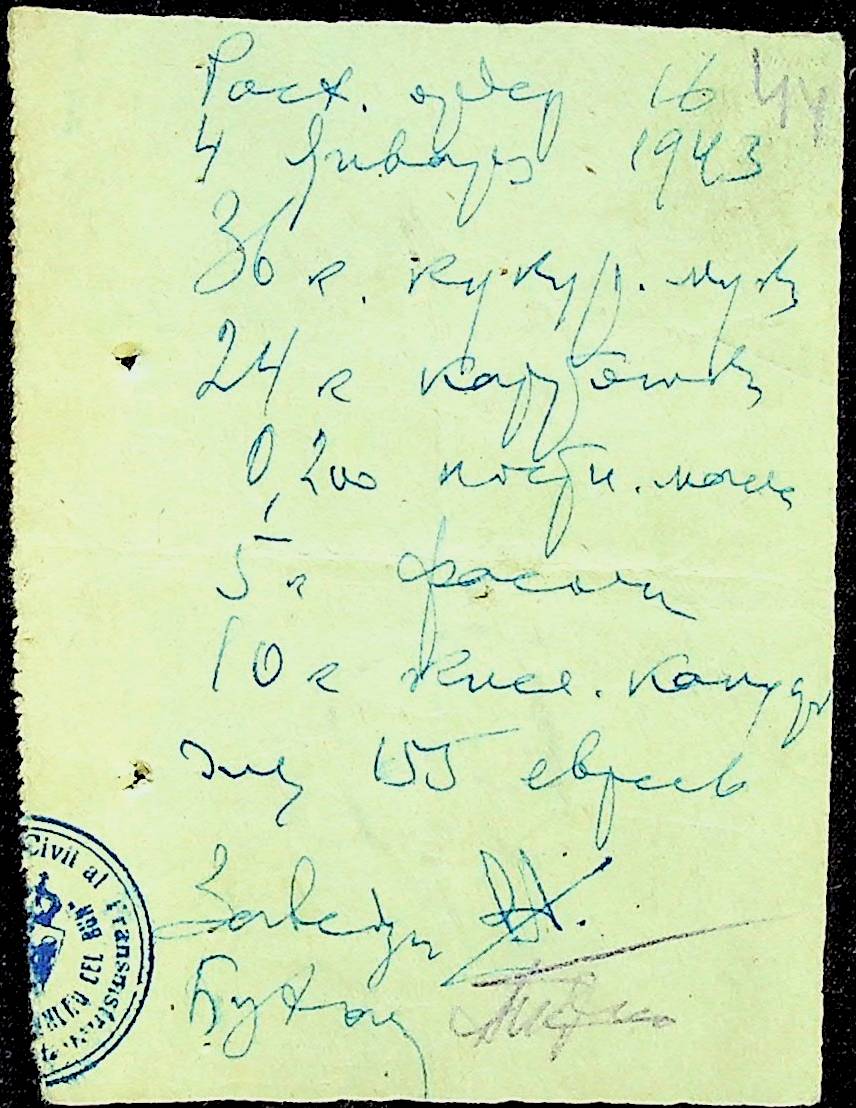 Расх. ордер 16 44
4 Января 1943
36 к. кукур. муки
24 к картошки
0,200 постн. масла
5 к фасоли
10 к кисл. капусты
для 155 евреев
Заведущ
Бухгал
Civil al Transnistriei
CEL BUN